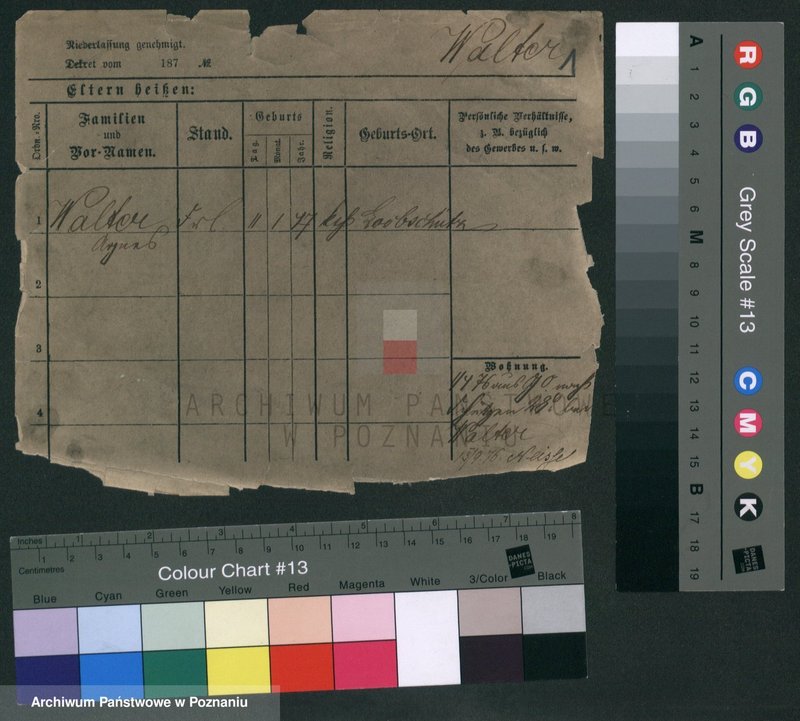 Niederlassung genehmigt.
Dekret vom 187 №
Walter
Eltern heißen:
Ordn.-Nro.
Familien
und
Vor-Namen.
Stand.
Geburts
Tag.
Monat.
Jahr.
Religion.
Geburts-Ort.
Persönliche Verhältnisse,
z. B. bezüglich
des Gewerbes u. s. w.
1 Walter Frl. 11 1 47
Agnes
2
3
Wohnung.
4
Walter
ARCHIWUM PAŃSTWOWE
W POZNANIU
A 1 2 3 4 5 6 M 8 9 10 11 12 13 14 15 B 17 18 19
R G B
Grey Scale #13
C M Y K
DANES
-PICTA
.COM
Inches 1 2 3 4 5 6 7 8
Centimetres 1 2 3 4 5 6 7 8 9 10 11 12 13 14 15 16 17 18 19
Colour Chart #13
DANES
-PICTA
.COM
Blue Cyan Green Yellow Red Magenta White 3/Color Black
Archiwum Państwowe w Poznaniu